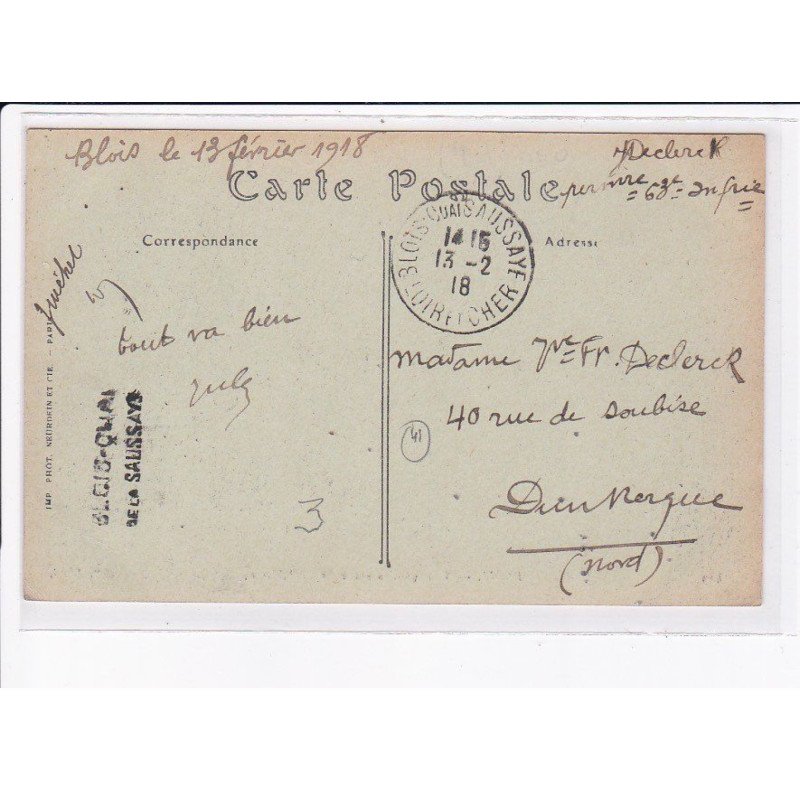 Blois le 13 février 1918
JDeclerck
63e
Carte Postale
Correspondance
Adresse
BLOIS-QUAI SAUSSAYE
14 15
13 -2
18
LOIR ET CHER
tout va bien
Madame Vve Fr. Declerck
40 rue de Soubise
41
Dunkerque
(Nord)
3
BLOIS-QUAI
DE LA SAUSSAYE
IMP. PHOT. NEURDEIN ET CIE. — PARIS